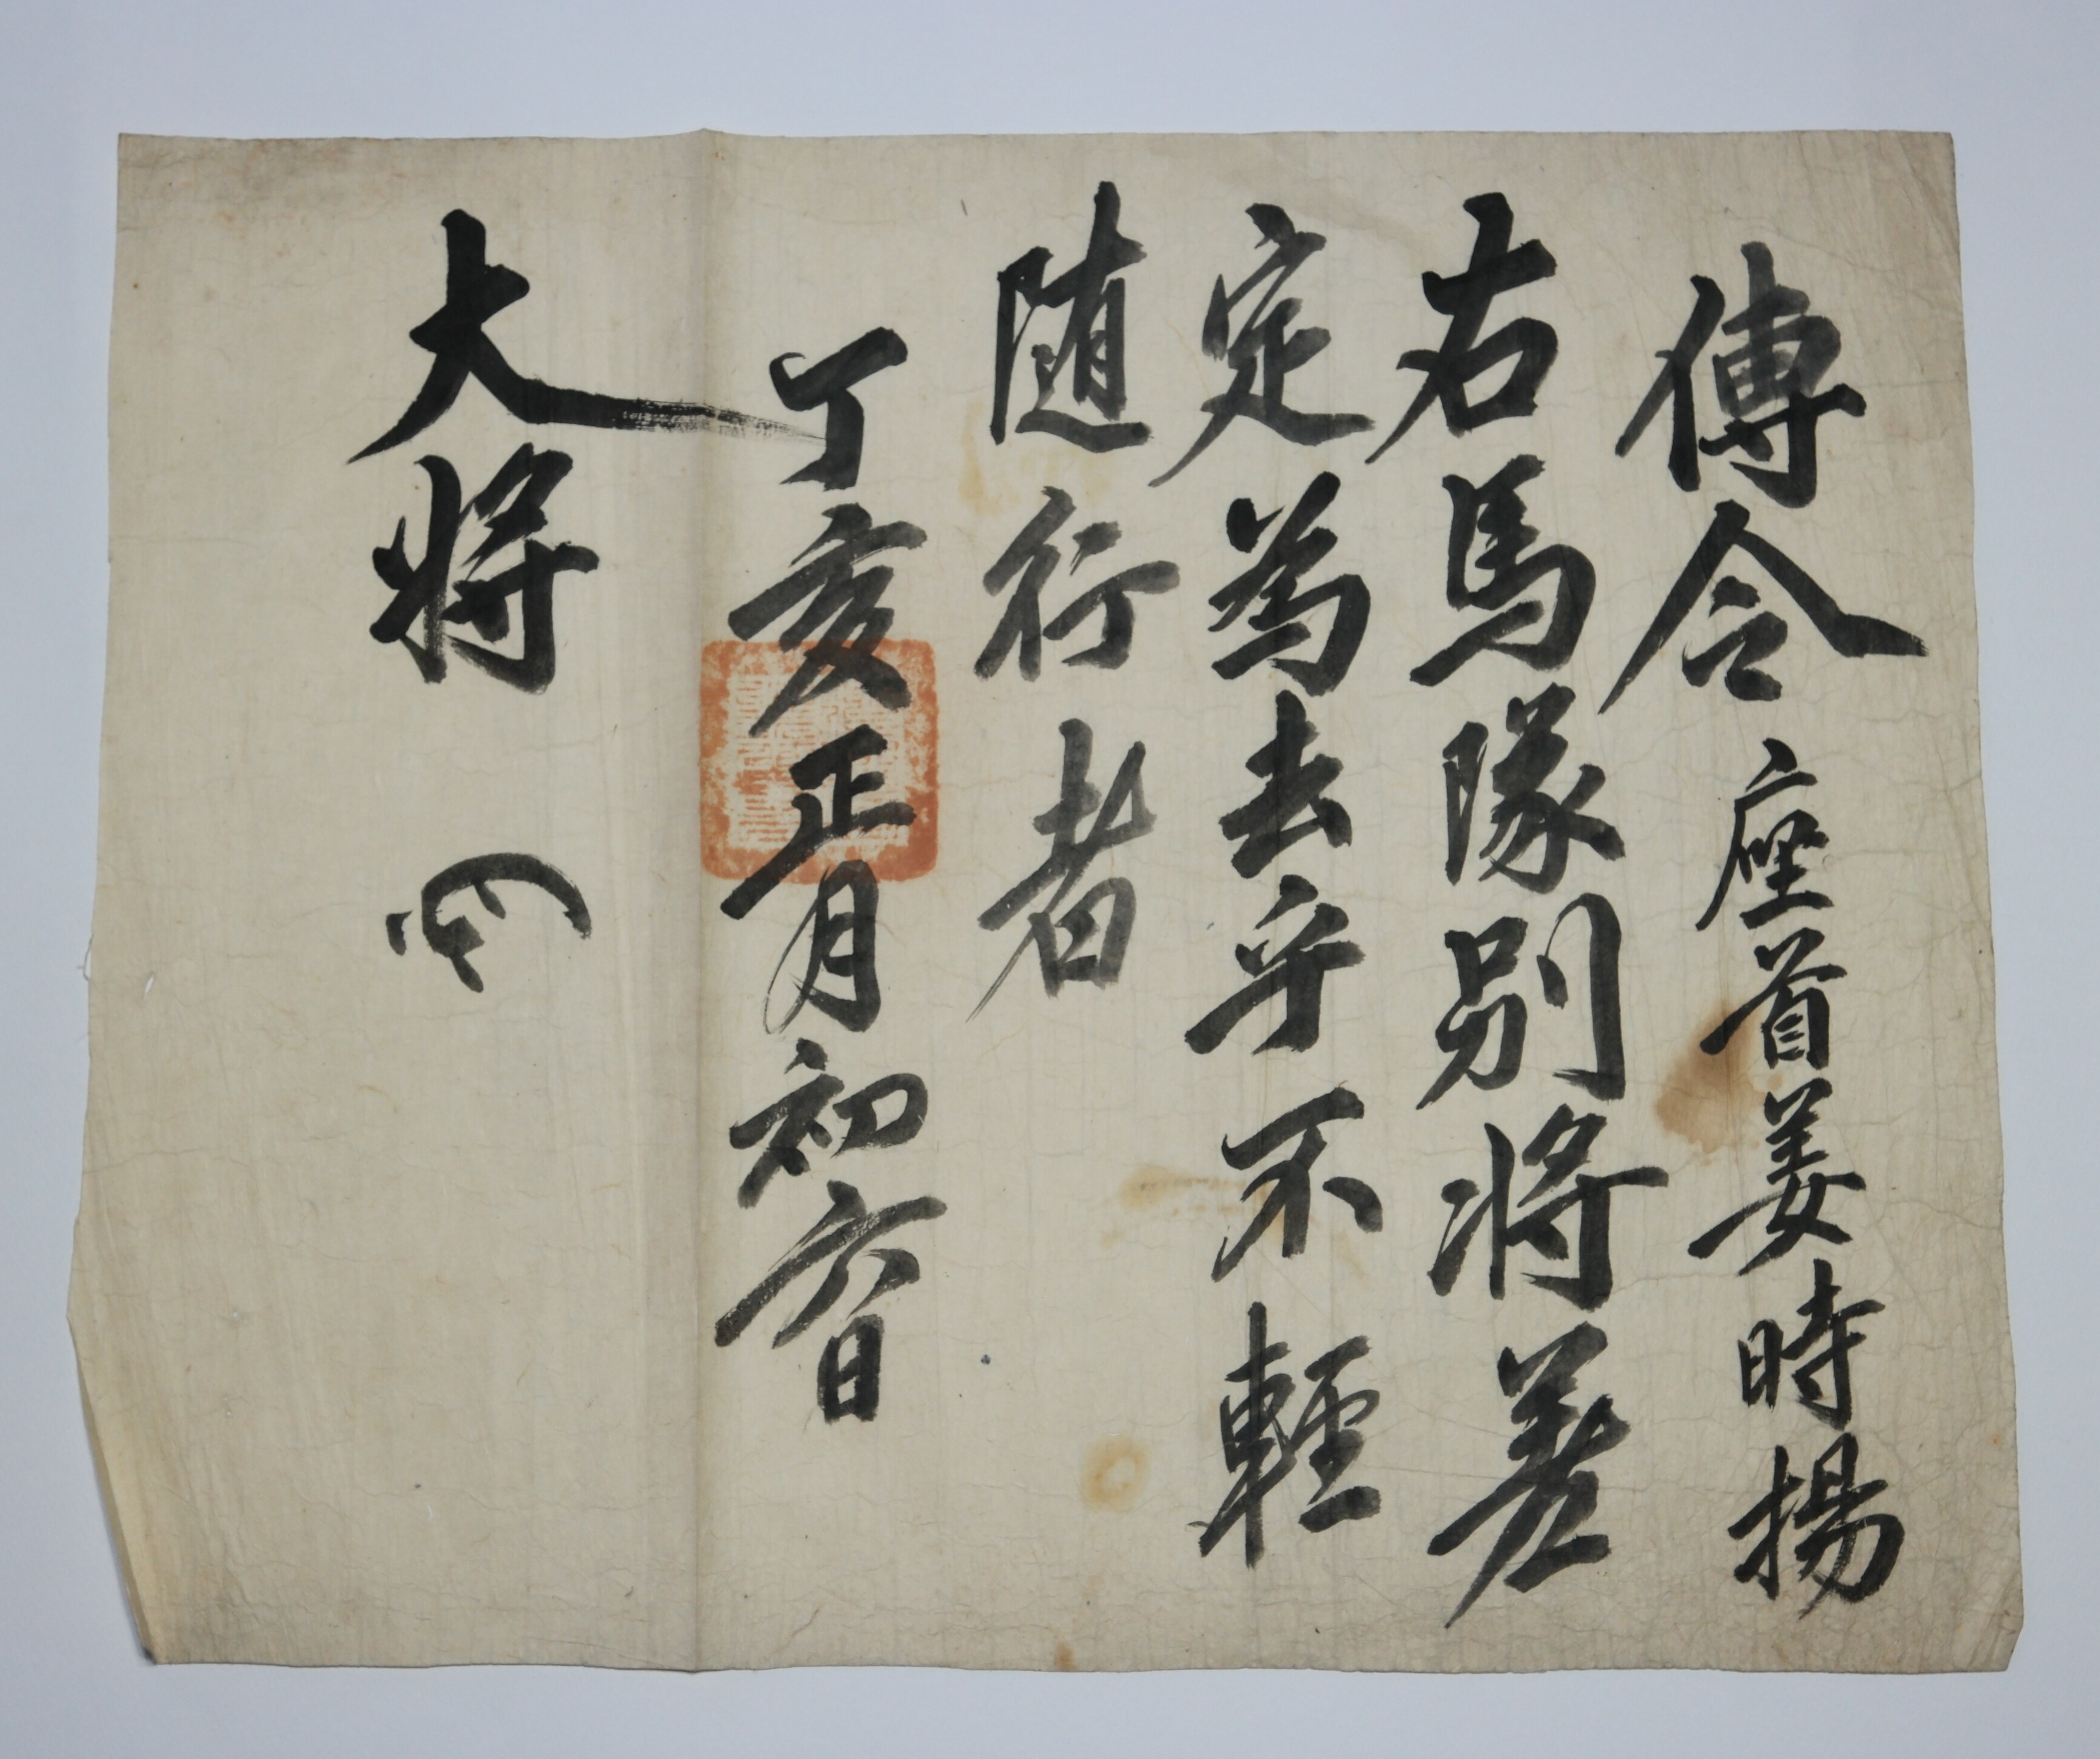 傳令 座首姜時揚
右馬隊別將差
定爲去乎不輕
随行者
丁亥正月初六日
大將